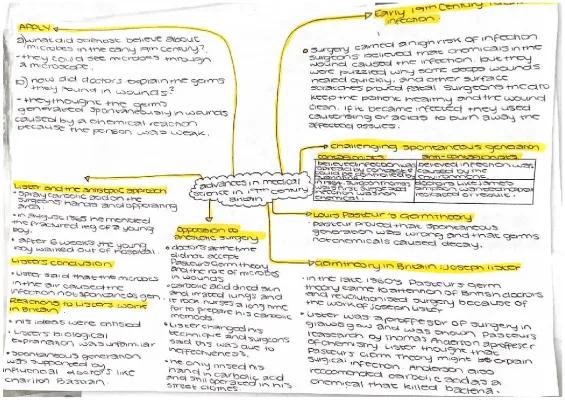 APPLY
a) what did scientist believe about
microbes in the early 19th century?
- they could see microbes through
a microscope.
b) how did doctors explain the germs
they found in wounds?
- they thought the germs
generated spontaneously in wounds
caused by a chemical reaction
because the person was weak.
Early 19th Century
infection.
surgery carried a high risk of infection
surgeons believed that chemicals in the
wound caused the infection, but they
were puzzled why some deep wounds
healed quickly, and other surface
scratches proved fatal. Surgeons tried to
keep the patient healthy and the wound
clean. If it became infected they used
cauterising or acids to burn away the
affected tissues.
challenging spontaneous generation
contagionists
anti-contagionists
believed infection was
believed infection was
caused by the
environment.
chemical.
advances in medical
science in 19th century
Britain
Louis Pasteur's Germ theory
Pasteur proved that spontaneous
generation was wrong and that germs
not chemicals caused decay.
Germ theory in Britain: Joseph Lister
in the late 1860s Pasteur's Germ
theory came to attention of British doctors
and revolutionised surgery because of
the work of Joseph Lister
Lister was a professor of surgery in
Glasgow and was shown Pasteur's
research by Thomas Anderson a professor
of chemistry. Lister thought that
Pasteur's Germ Theory might explain
surgical infection. Anderson also
recommended carbolic acid as a
chemical that killed bacteria.
Lister and the antiseptic approach
spray carbolic acid on the
surgeons hands and operating
area.
in August 1865 he mended
the fractured leg of a young
boy.
after 6 weeks the young
boy walked out of hospital.
Lister's conclusion
Lister said that the microbes
in the air caused the
infection not spontaneous gen.
Reactions to Lister's work
in Britain
his ideas were criticised
Lister's biological
explanation was unfamiliar
spontaneous generation
was supported by
influential doctors like
Charlton Bastian.
Opposition to
antiseptic surgery
doctors at the time
did not accept
Pasteur's Germ theory
and the role of microbes
in wounds
carbolic acid dried skin
and irritated lungs and
it took nurses a long time
for to prepare his carbolic
methods.
Lister changed his
techniques and surgeons
said this was due to
ineffectiveness.
he only rinsed his
hand in carbolic acid
and still operated in his
street clothes.